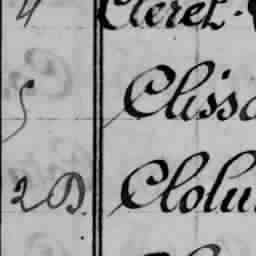 4 Cleret.
5 Cliss
2 D. Clolu